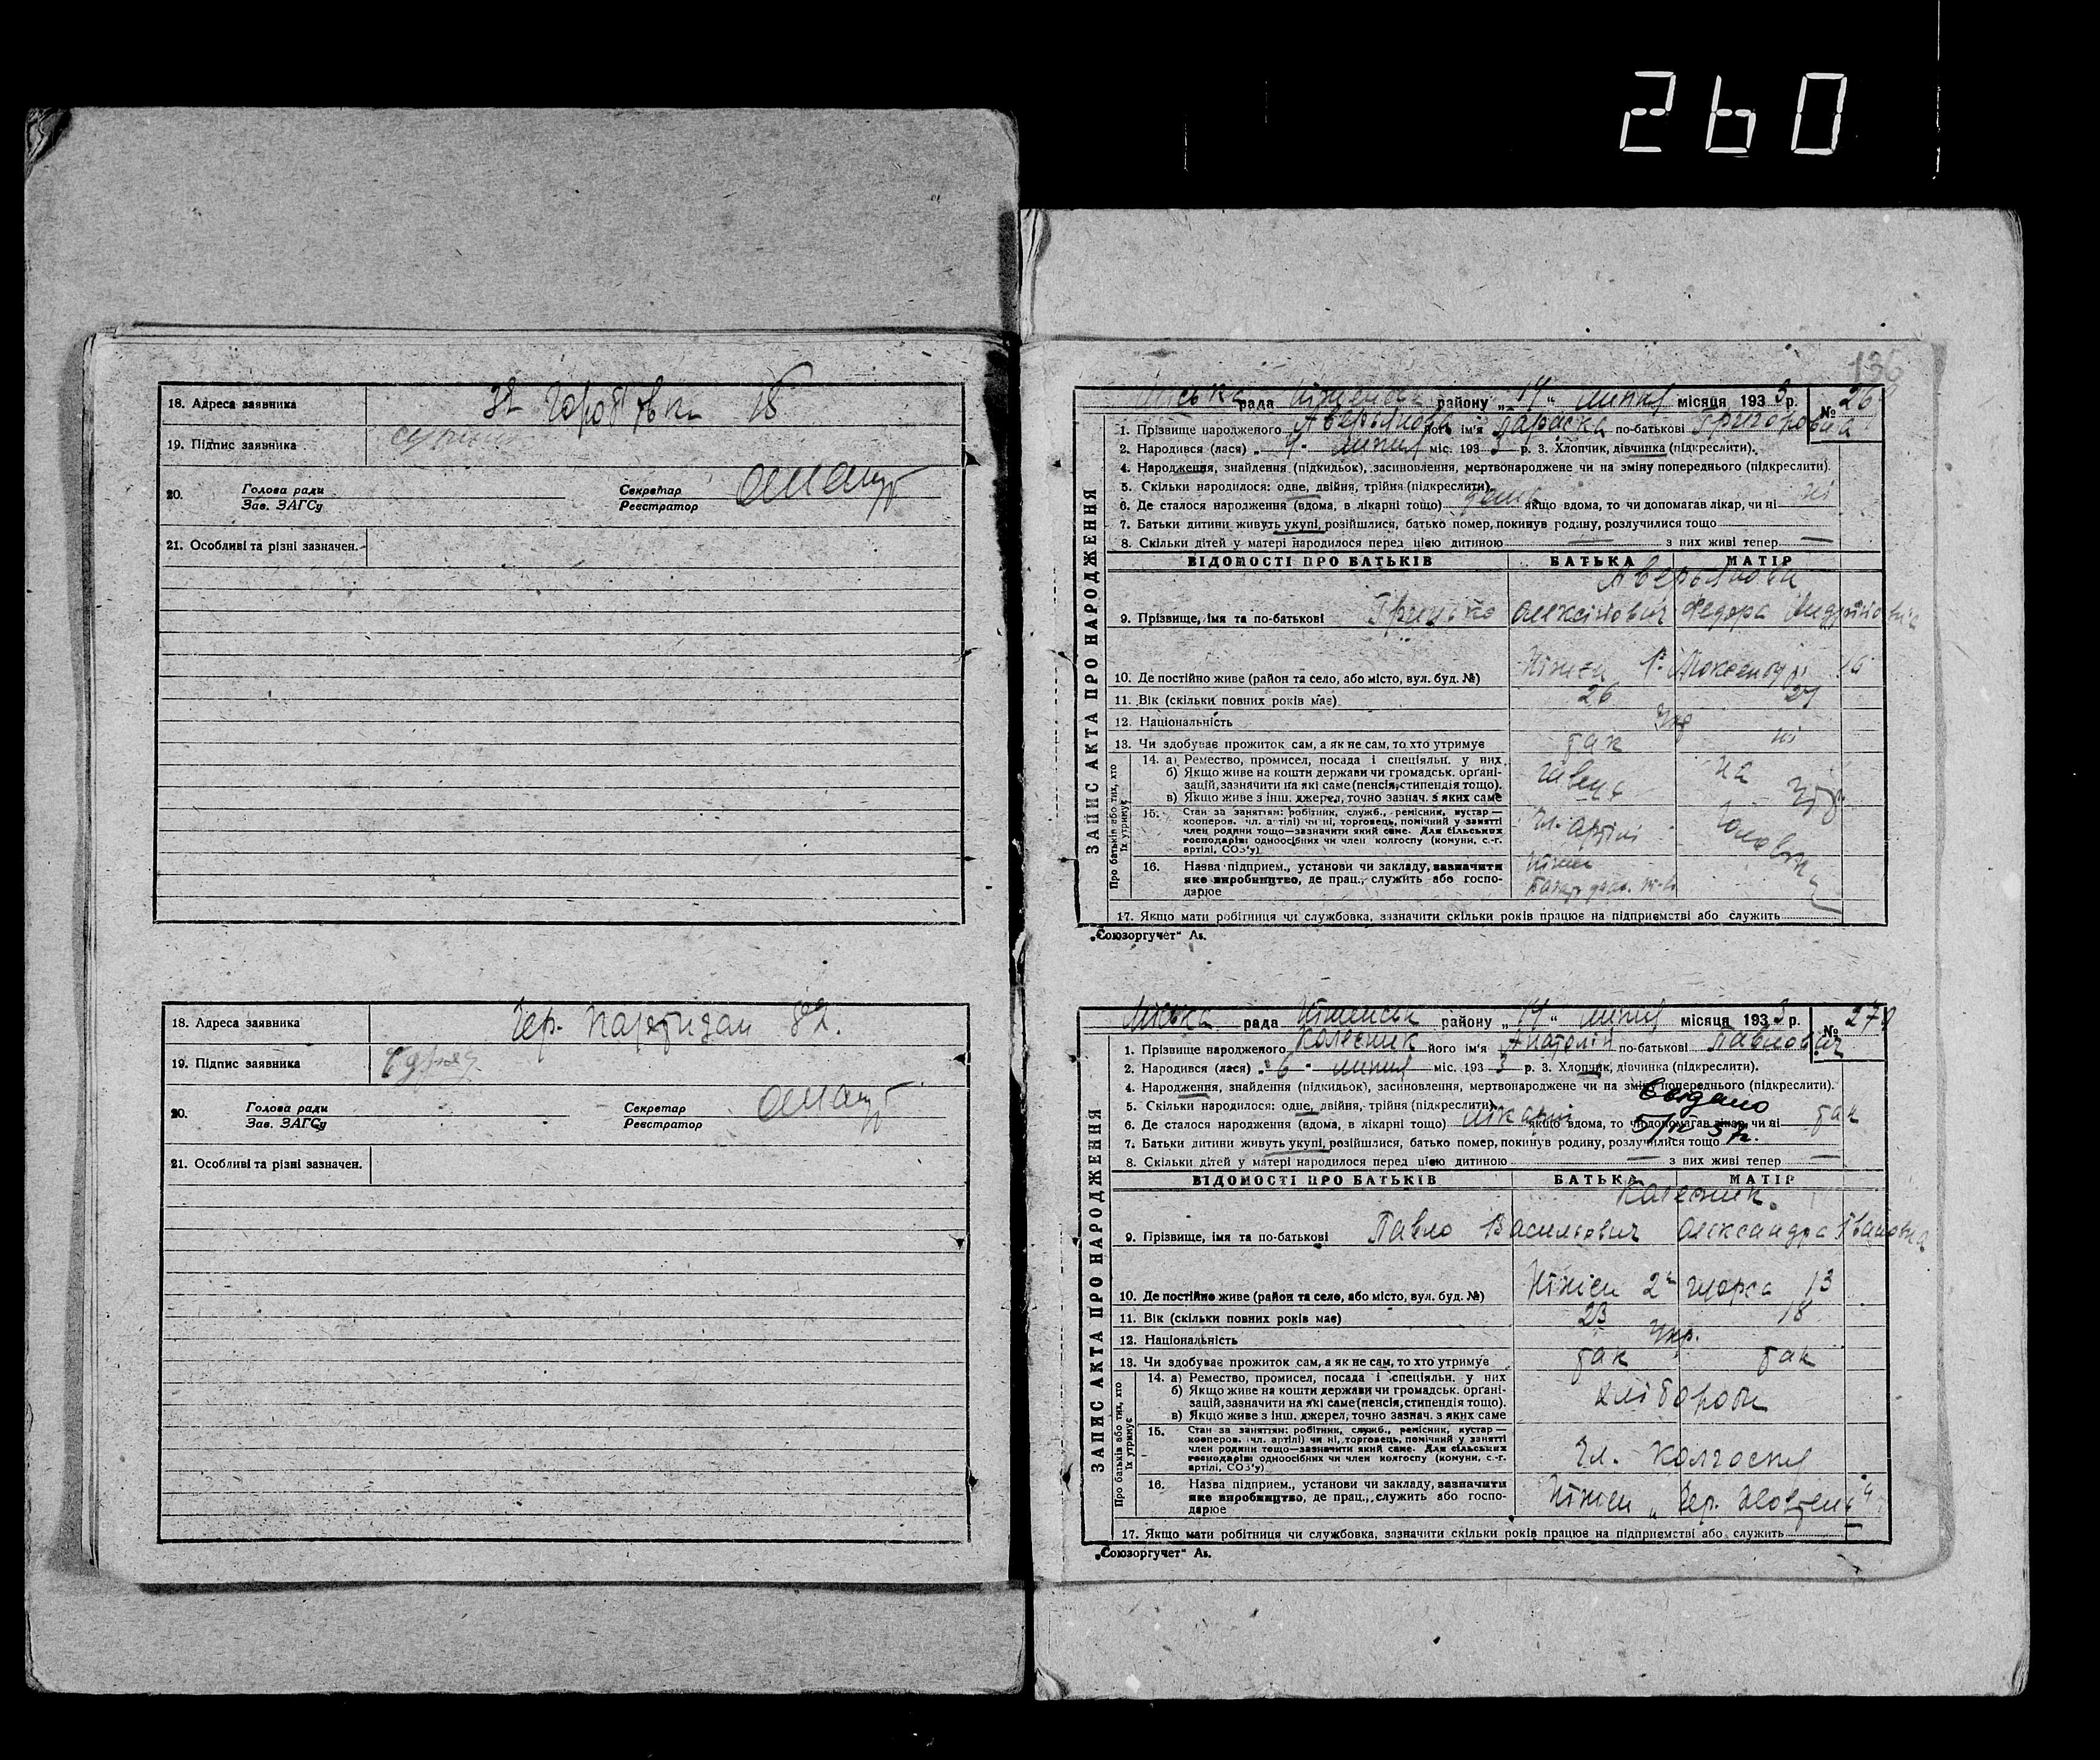 260
18. Адреса заявника
19. Підпис заявника
20. Голова ради Секретар
Зав. ЗАГСу Реєстратор
21. Особливі та різні зазначен.
18. Адреса заявника Чер. Партизан
19. Підпис заявника
20. Голова ради Секретар
Зав. ЗАГСу Реєстратор
21. Особливі та різні зазначен.
136
ЗАПИС АКТА ПРО НАРОДЖЕННЯ
Міська рада району „14“ липня місяця 1933 р. №
1. Прізвище народженого його ім'я Параска по-батькові Григоровна
2. Народився (лася) „ “ липня міс. 1933 р. 3. Хлопчик, дівчинка (підкреслити).
4. Народження, знайдення (підкидьок), засиновлення, мертвонароджене чи на зміну попереднього (підкреслити).
5. Скільки народилося: одне, двійня, трійня (підкреслити)
6. Де сталося народження (вдома, в лікарні тощо) якщо вдома, то чи допомагав лікар, чи ні ні
7. Батьки дитини живуть укупі, розійшлися, батько помер, покинув родину, розлучилися тощо
8. Скільки дітей у матері народилося перед цією дитиною — з них живі тепер —
ВІДОМОСТІ ПРО БАТЬКІВ БАТЬКА МАТІР
9. Прізвище, імя та по-батькові
10. Де постійно живе (район та село, або місто, вул. буд. №) Ніжен
11. Вік (скільки повних років має) 26
12. Національність Укр
13. Чи здобуває прожиток сам, а як не сам, то хто утримує так ні
Про батьків або тих, хто їх утримує
14. а) Ремество, промисел, посада і спеціяльн. у них
б) Якщо живе на кошти держави чи громадськ. організацій, зазначити на які саме (пенсія, стипендія тощо).
в) Якщо живе з інш. джерел, точно зазнач. з яких саме
швець на
15. Стан за заняттям: робітник, служб., ремісник, кустар —
кооперов. чл. артілі) чи ні, торговець, помічний у занятті
член родини тощо—зазначити який саме. Для сільських
господарів: одноосібних чи член колгоспу (комуни, с.-г.
артілі, СОЗ'у)
Чл. артілі
16. Назва підприєм., установи чи закладу, зазначити
яке виробництво, де прац., служить або господарює
Ніжен
17. Якщо мати робітниця чи службовка, зазначити скільки років працює на підприємстві або служить
„Союзоргучет“ Ав.
ЗАПИС АКТА ПРО НАРОДЖЕННЯ
Міська рада Ніженськ району „14“ липня місяця 1933 р. № 270
1. Прізвище народженого Колесник його ім'я Анатолій по-батькові Павлович
2. Народився (лася) „6“ липня міс. 1933 р. 3. Хлопчик, дівчинка (підкреслити).
4. Народження, знайдення (підкидьок), засиновлення, мертвонароджене чи на зміну попереднього (підкреслити).
Выдано
5. Скільки народилося: одне, двійня, трійня (підкреслити)
6. Де сталося народження (вдома, в лікарні тощо) лікарні якщо вдома, то чи допомагав лікар, чи ні так
7. Батьки дитини живуть укупі, розійшлися, батько помер, покинув родину, розлучилися тощо
8. Скільки дітей у матері народилося перед цією дитиною — з них живі тепер —
ВІДОМОСТІ ПРО БАТЬКІВ БАТЬКА МАТІР
Колесник
9. Прізвище, імя та по-батькові Павло Васильович Олександра Івановна
10. Де постійно живе (район та село, або місто, вул. буд. №) Ніжен 2й Щорса 13
11. Вік (скільки повних років має) 23 18
12. Національність Укр.
13. Чи здобуває прожиток сам, а як не сам, то хто утримує так так
Про батьків або тих, хто їх утримує
14. а) Ремество, промисел, посада і спеціяльн. у них
б) Якщо живе на кошти держави чи громадськ. організацій, зазначити на які саме (пенсія, стипендія тощо).
в) Якщо живе з інш. джерел, точно зазнач. з яких саме
хлібороби
15. Стан за заняттям: робітник, служб., ремісник, кустар —
кооперов. чл. артілі) чи ні, торговець, помічний у занятті
член родини тощо—зазначити який саме. Для сільських
господарів: одноосібних чи член колгоспу (комуни, с.-г.
артілі, СОЗ'у)
Чл. колгоспу
16. Назва підприєм., установи чи закладу, зазначити
яке виробництво, де прац., служить або господарює
Ніжен „Чер. Жовтень“
17. Якщо мати робітниця чи службовка, зазначити скільки років працює на підприємстві або служить
„Союзоргучет“ Ав.